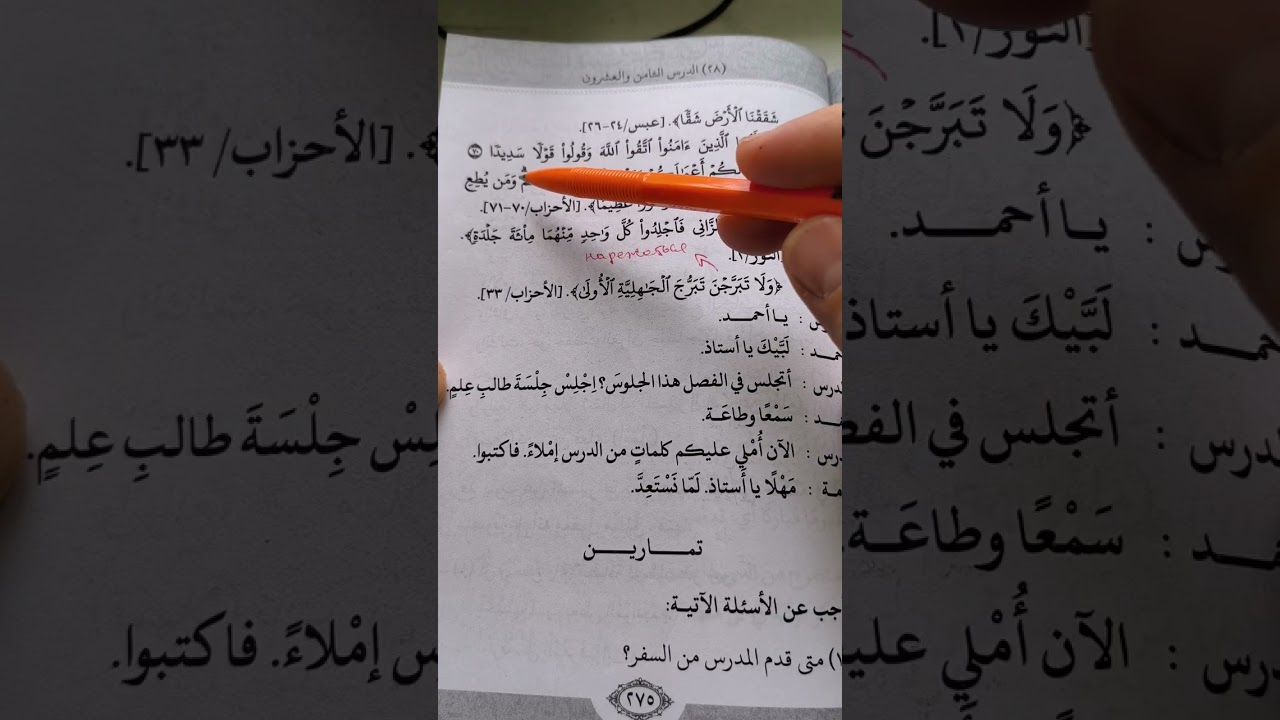 (٢٨) الدرس الثامن والعشرون
شَقَقْنَا ٱلْأَرْضَ شَقًّا﴾. [عبس/٢٤-٢٦].
ٱلَّذِينَ ءَامَنُوا۟ ٱتَّقُوا۟ ٱللَّهَ وَقُولُوا۟ قَوْلًا سَدِيدًا ٧٠
لَكُمْ وَمَن يُطِعِ
عَظِيمًا﴾. [الأحزاب/٧٠-٧١].
فَٱجْلِدُوا۟ كُلَّ وَٰحِدٍ مِّنْهُمَا مِا۟ئَةَ جَلْدَةٍ﴾.
[النور/٢].
﴿وَلَا تَبَرَّجْنَ تَبَرُّجَ ٱلْجَٰهِلِيَّةِ ٱلْأُولَىٰ﴾. [الأحزاب/٣٣].
: يـا أحمـــد.
: لَبَّيْكَ يا أستاذ.
: أتجلس في الفصل هذا الجلوسَ؟ اِجْلِسْ جِلْسَةَ طالبِ عِلمٍ.
: سَمْعًا وطاعَـة.
: الآن أُمْلِي عليكم كلماتٍ من الدرس إمْلاءً. فاكتبوا.
: مَهْلًا يا أستاذ. لَمَّا نَسْتَعِدَّ.
تمـــاريـــن
أجب عن الأسئلة الآتيـة:
١) متى قدم المدرس من السفر؟
٢٧٥